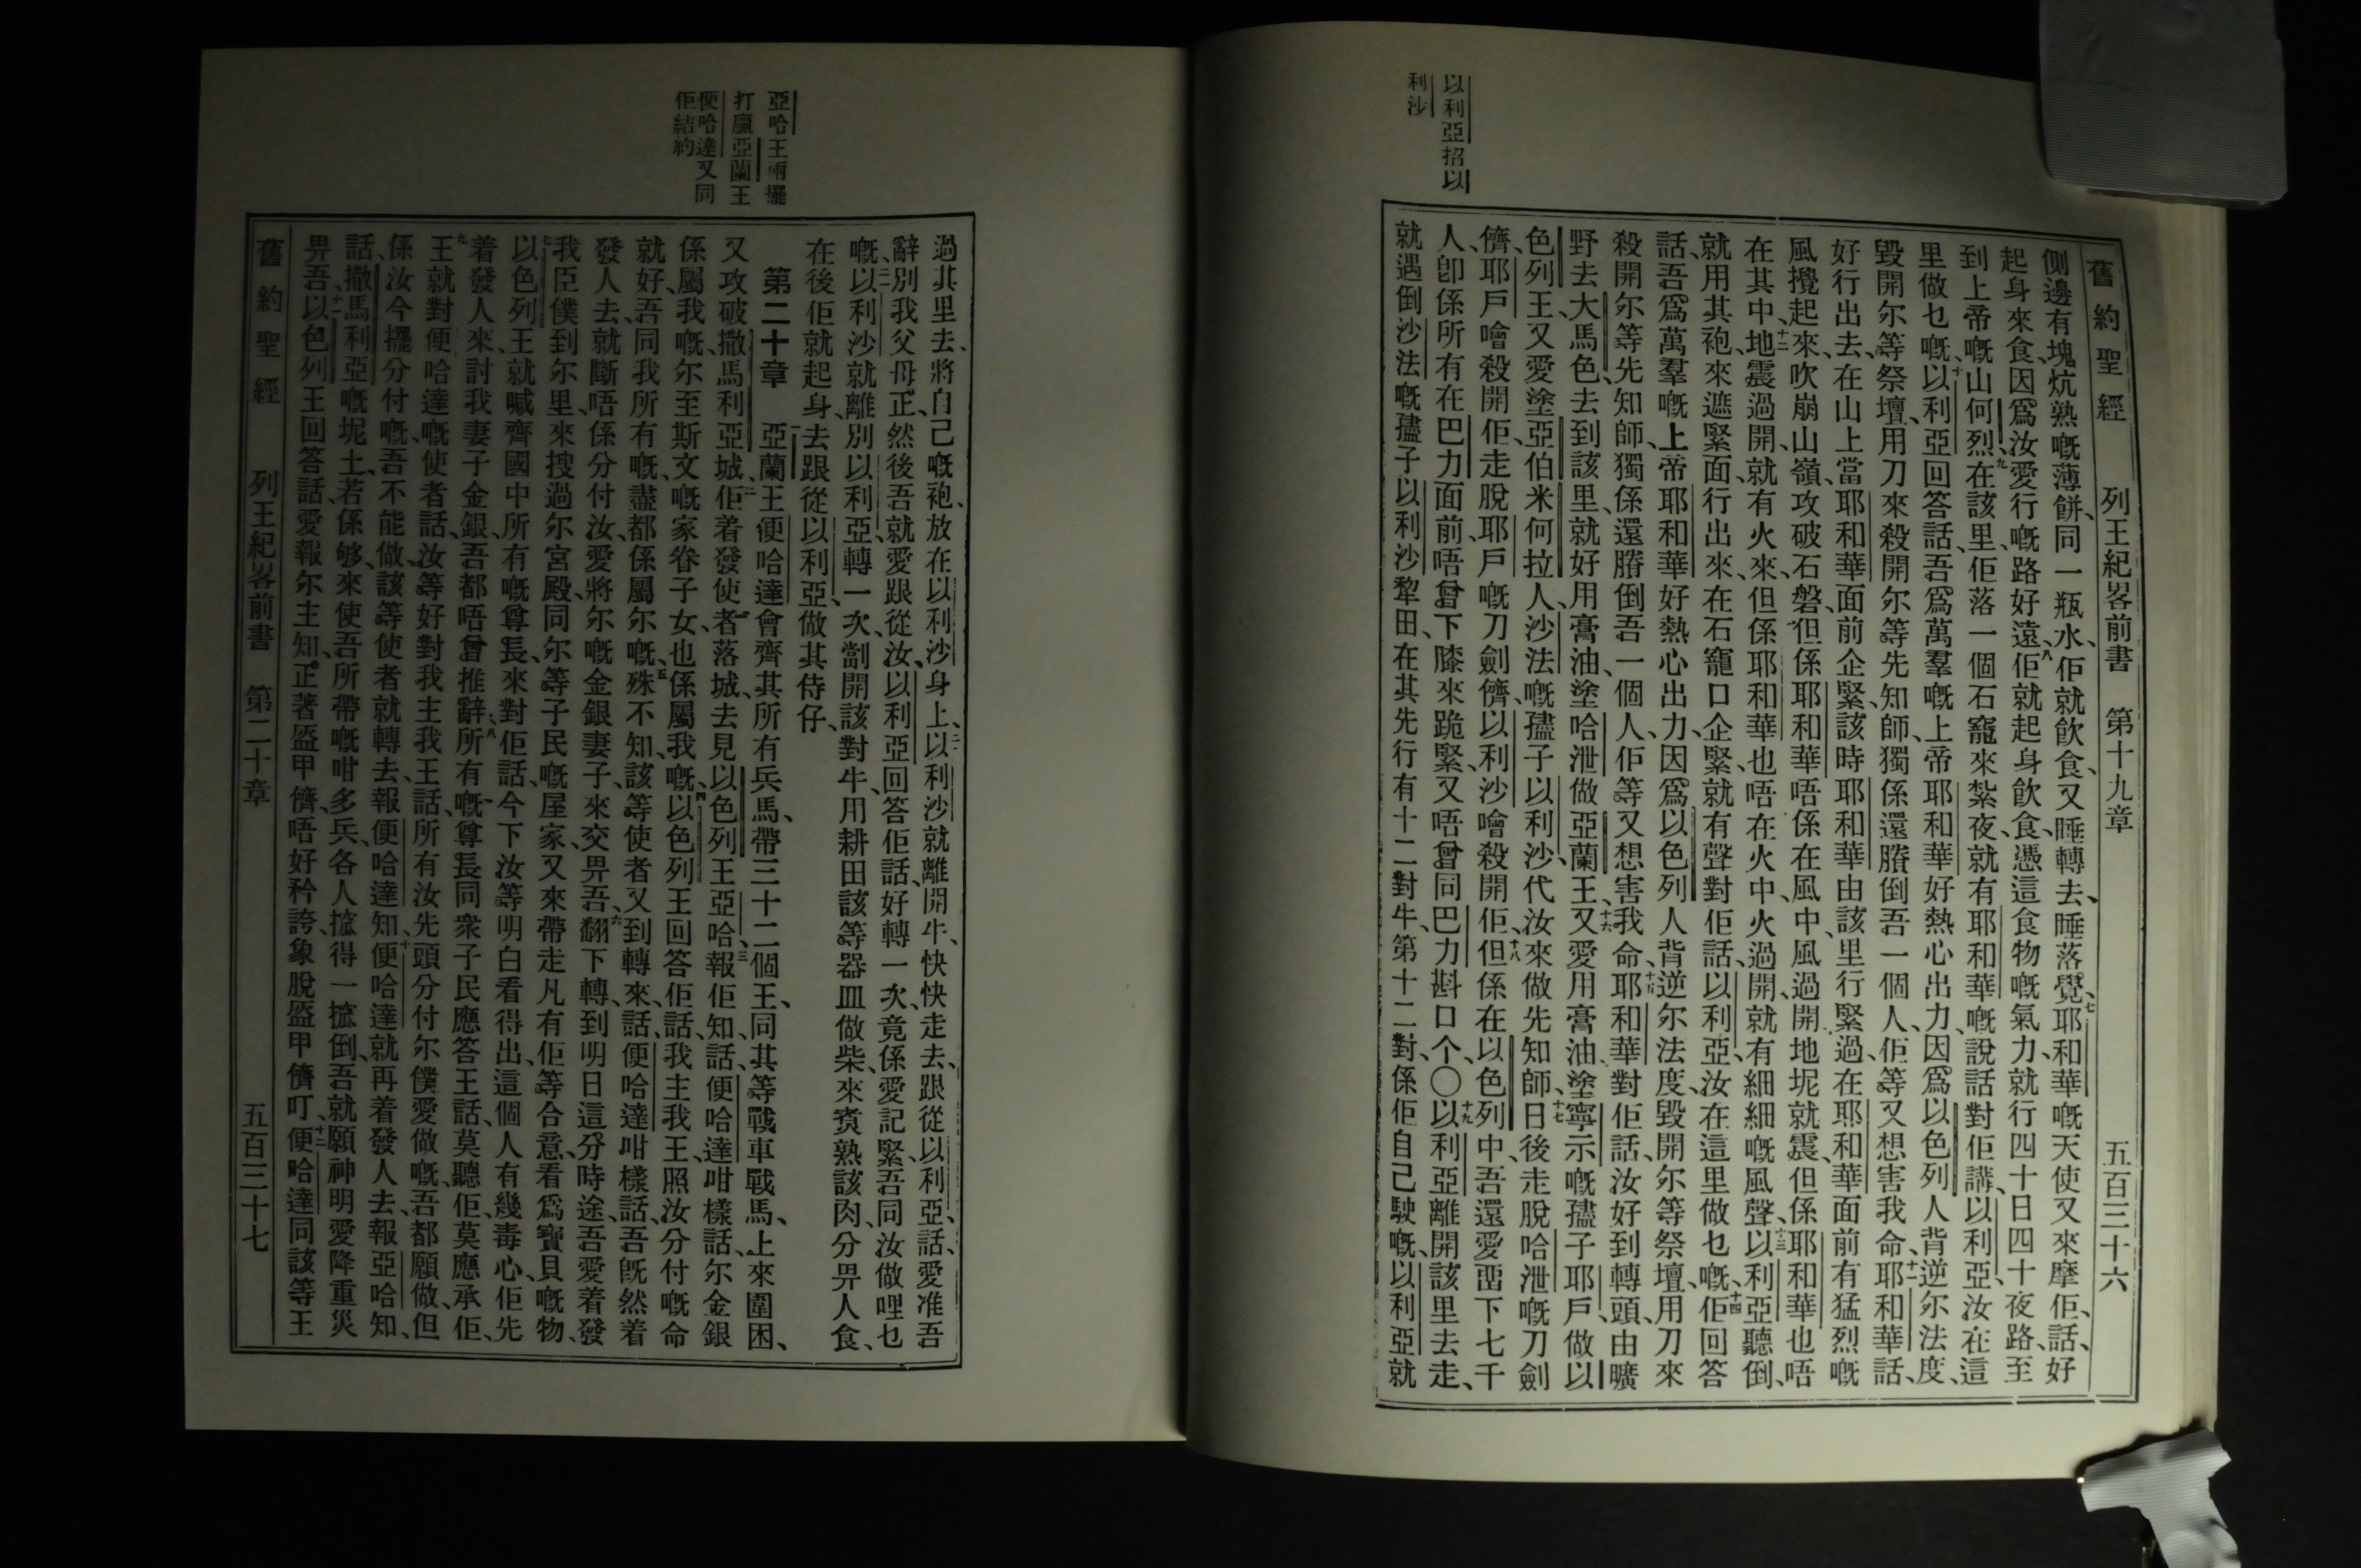 舊約聖經 列王紀畧前書 第十九章 五百三十六
側邊有塊炕熟嘅薄餅、同一瓶水、佢就飮食、又睡轉去、睡落覺、七耶和華嘅天使又來摩佢、話、好
起身來食、因爲汝愛行嘅路好遠、八佢就起身飮食、憑這食物嘅氣力、就行四十日四十夜路、至
到上帝嘅山何烈、九在該里、佢落一個石竉來紮夜、就有耶和華嘅說話對佢講、以利亞、汝在這
里做乜嘅、十以利亞回答話、吾爲萬羣嘅上帝耶和華好熱心出力、因爲以色列人背逆尔法度、
毀開尔等祭壇、用刀來殺開尔等先知師、獨係還賸倒吾一個人、佢等又想害我命、十一耶和華話、
好行出去、在山上當耶和華面前企緊、該時耶和華由該里行緊過、在耶和華面前有猛烈嘅
風攪起來、吹崩山嶺、攻破石磐、但係耶和華唔係在風中、風過開地坭就震、但係耶和華也唔
在其中、十二地震過開、就有火來、但係耶和華也唔在火中、火過開、就有細細嘅風聲、十三以利亞聽倒、
就用其袍、來遮緊面、行出來、在石竉口企緊、就有聲對佢話、以利亞、汝在這里做乜嘅、十四佢回答
話、吾爲萬羣嘅上帝耶和華好熱心出力、因爲以色列人背逆尔法度、毀開尔等祭壇、用刀來
殺開尔等先知師、獨係還賸倒吾一個人、佢等又想害我命、十五耶和華對佢話、汝好到轉頭、由曠
野去大馬色、去到該里、就好用膏油、塗哈泄做亞蘭王、十六又愛用膏油塗寧示嘅孻子耶戶、做以
色列王、又愛塗亞伯米何拉人、沙法嘅孻子以利沙、代汝來做先知師、十七日後走脫哈泄嘅刀劍
儕、耶戶噲殺開佢、走脫耶戶嘅刀劍儕、以利沙噲殺開佢、十八但係在以色列中、吾還愛畱下七千
人、卽係所有在巴力面前唔曾下膝來跪緊、又唔曾同巴力斟口个、〇十九以利亞離開該里去走、
就遇倒沙法嘅孻子以利沙犂田、在其先行有十二對牛、第十二對、係佢自己駛嘅、以利亞就
以利亞招以
利沙
過其里去、將自己嘅袍、放在以利沙身上、二十以利沙就離開牛、快快走去、跟從以利亞、話、愛准吾
辭別我父母、正然後吾就愛跟從汝、以利亞回答佢話、好轉一次、竟係愛記緊、吾同汝做哩乜
嘅、以利沙就離別以利亞、轉一次、劏開該對牛、用耕田該等器皿做柴、來煑熟該肉、分畀人食、
在後佢就起身、去跟從以利亞、做其侍仔、
第二十章 亞蘭王便哈達會齊其所有兵馬、帶三十二個王、同其等戰車戰馬、上來圍困、
又攻破撒馬利亞城、二佢着發使者落城、去見以色列王亞哈、三報佢知、話、便哈達咁樣話、尔金銀
係屬我嘅、尔至斯文嘅家眷子女、也係屬我嘅、四以色列王回答佢話、我主我王、照汝分付嘅命
就好、吾同我所有嘅、盡都係屬尔嘅、五殊不知、該等使者又到轉來、話、便哈達咁樣話、吾旣然着
發人去、就斷唔係分付汝、愛將尔嘅金銀妻子、來交畀吾、六翻下轉到明日這分時途、吾愛着發
我臣僕到尔里、來搜過尔宮殿、同尔等子民嘅屋家、又來帶走凡有佢等合意、看爲寶貝嘅物、
七以色列王就喊齊國中所有嘅尊長、來對佢話、今下汝等明白看得出、這個人有幾毒心、佢先
着發人來、討我妻子金銀、吾都唔曾推辭、八所有嘅尊長同衆子民應答王話、莫聽佢、莫應承佢、
九王就對便哈達嘅使者話、汝等好對我主我王話、所有汝先頭分付尔僕愛做嘅、吾都願做、但
係汝今擺分付嘅、吾不能做、該等使者就轉去、報便哈達知、十便哈達就再着發人去、報亞哈知、
話、撒馬利亞嘅坭土、若係够、來使吾所帶嘅咁多兵、各人㧯得一㧯倒、吾就願神明愛降重災
畀吾、十一以色列王回答話、愛報尔主知、正著盔甲儕、唔好矜誇、象脫盔甲儕叮、十二便哈達同該等王
舊約聖經 列王紀畧前書 第二十章 五百三十七
亞哈王兩擺
打贏亞蘭王
便哈達又同
佢結約